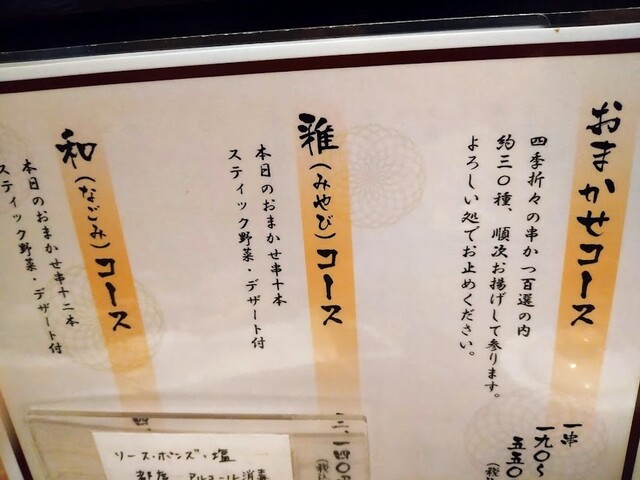 おまかせコース
四季折々の串かつ百選の内
約三〇種、順次お揚げして参ります。
よろしい処でお止めください。
一串
一九〇〜
五五〇
雅(みやび)コース
本日のおまかせ串十本
スティック野菜・デザート付
和(なごみ)コース
本日のおまかせ串十二本
スティック野菜・デザート付
ソース・ポンズ・塩
アルコール消毒